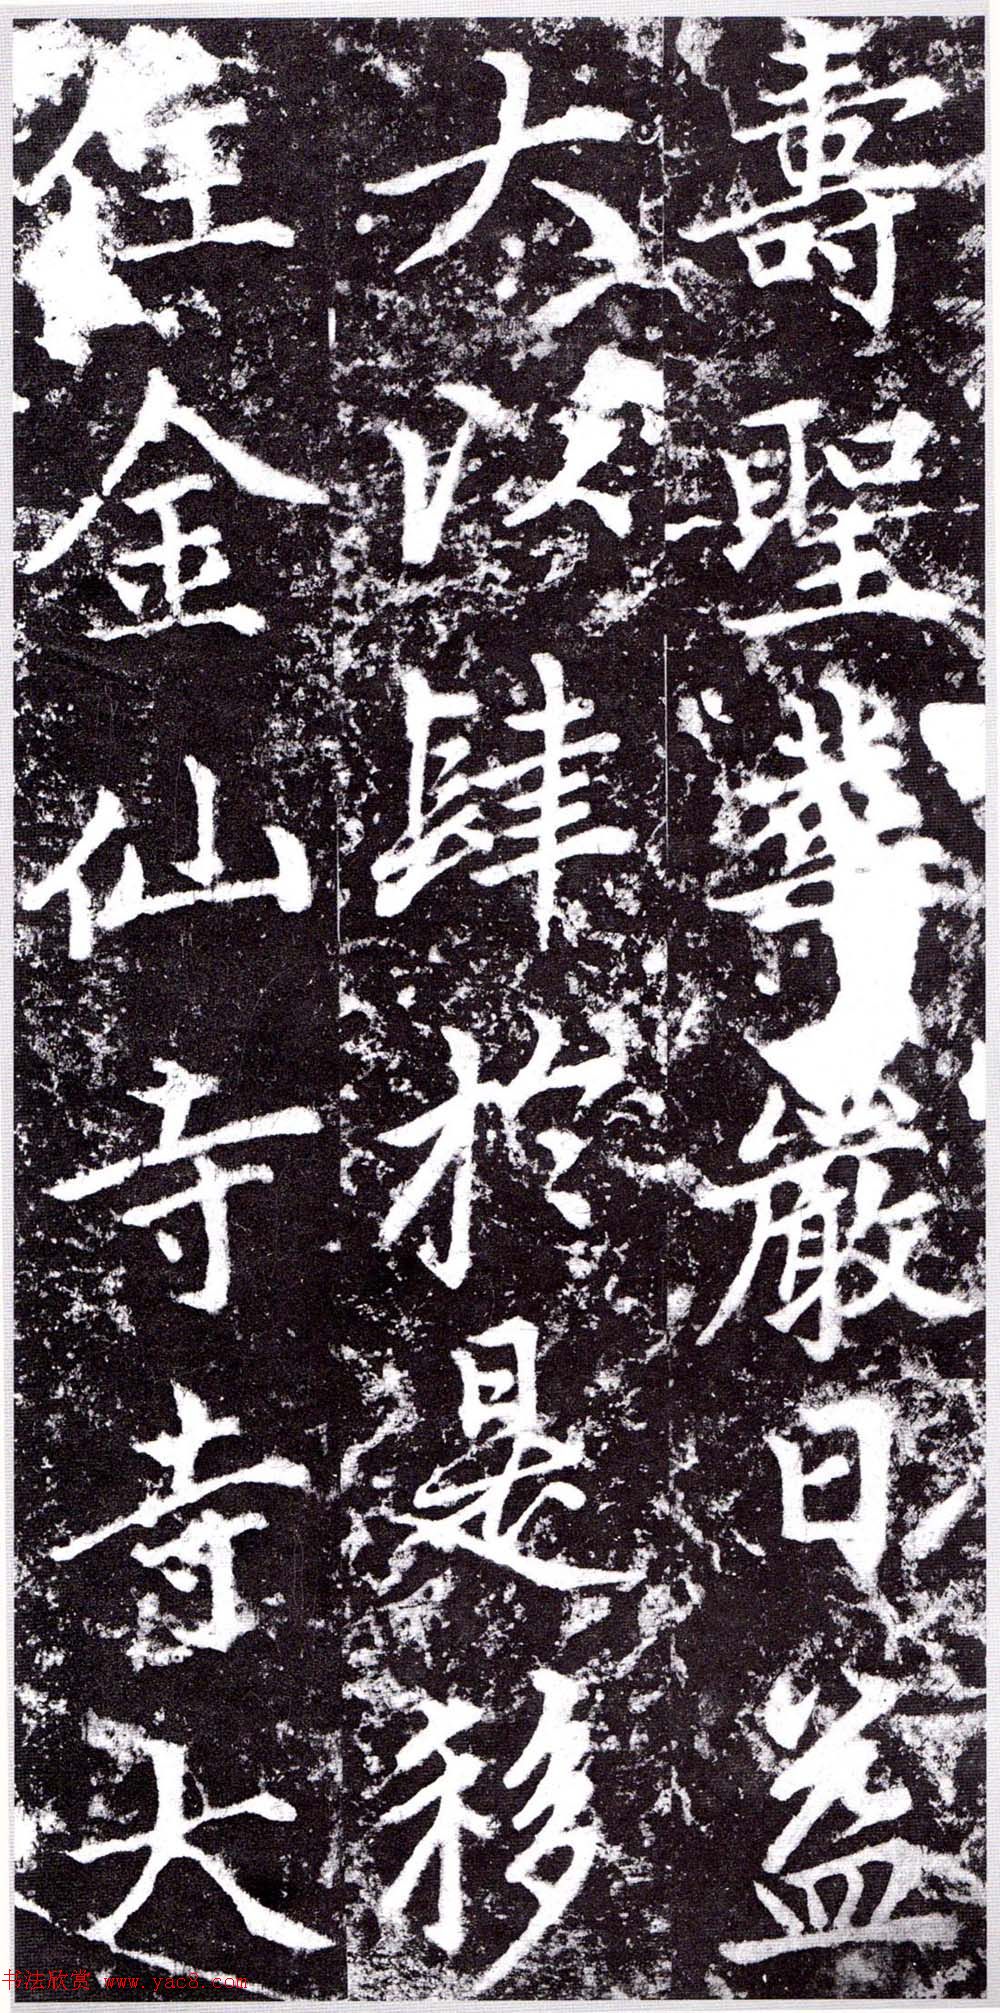 壽聖華嚴日益
大以肆於是移
住金仙寺寺大
书法欣赏 www.yac8.com